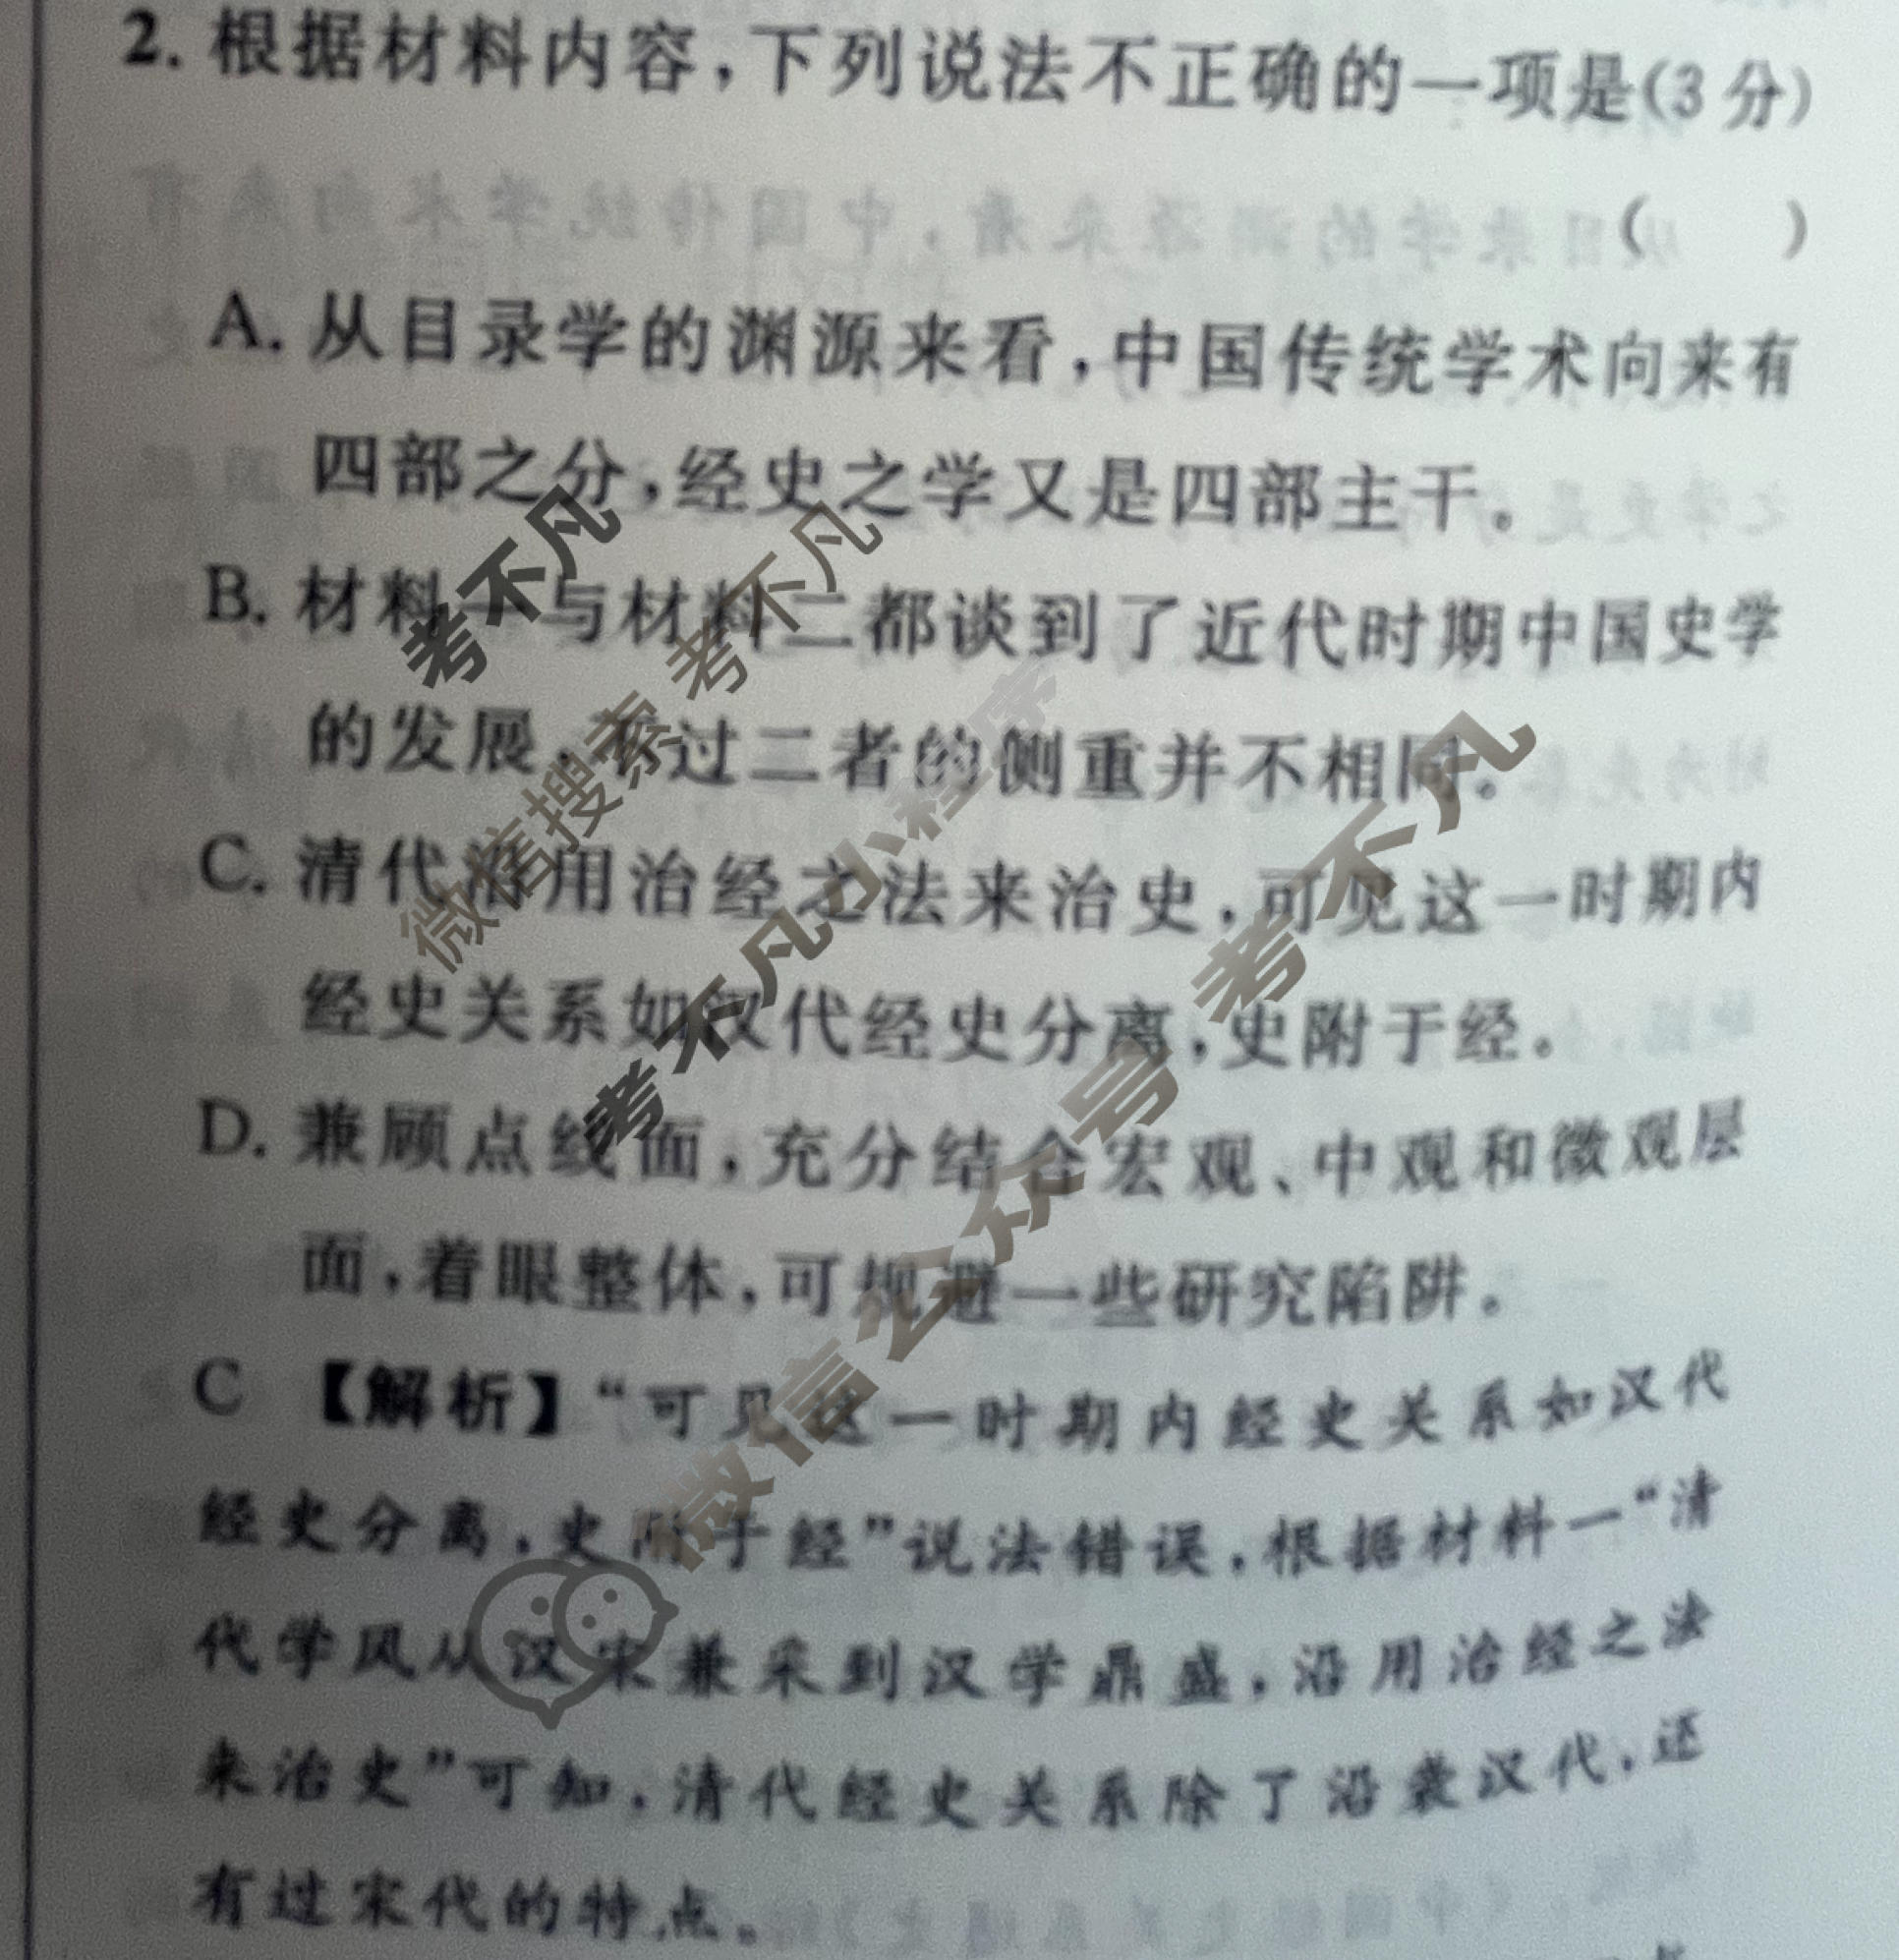 2. 根据材料内容，下列说法不正确的一项是(3分)
(　　)
A. 从目录学的渊源来看，中国传统学术向来有
四部之分，经史之学又是四部主干。
B. 材料一与材料二都谈到了近代时期中国史学
的发展，不过二者的侧重并不相同。
C. 清代沿用治经之法来治史，可见这一时期内
经史关系如汉代经史分离，史附于经。
D. 兼顾点线面，充分结合宏观、中观和微观层
面，着眼整体，可规避一些研究陷阱。
C 【解析】“可见这一时期内经史关系如汉代
经史分离，史附于经”说法错误，根据材料一“清
代学风从汉宋兼采到汉学鼎盛，沿用治经之法
来治史”可知，清代经史关系除了沿袭汉代，还
有过宋代的特点。
考不凡
微信搜索 考不凡
考不凡小程序
微信公众号 考不凡